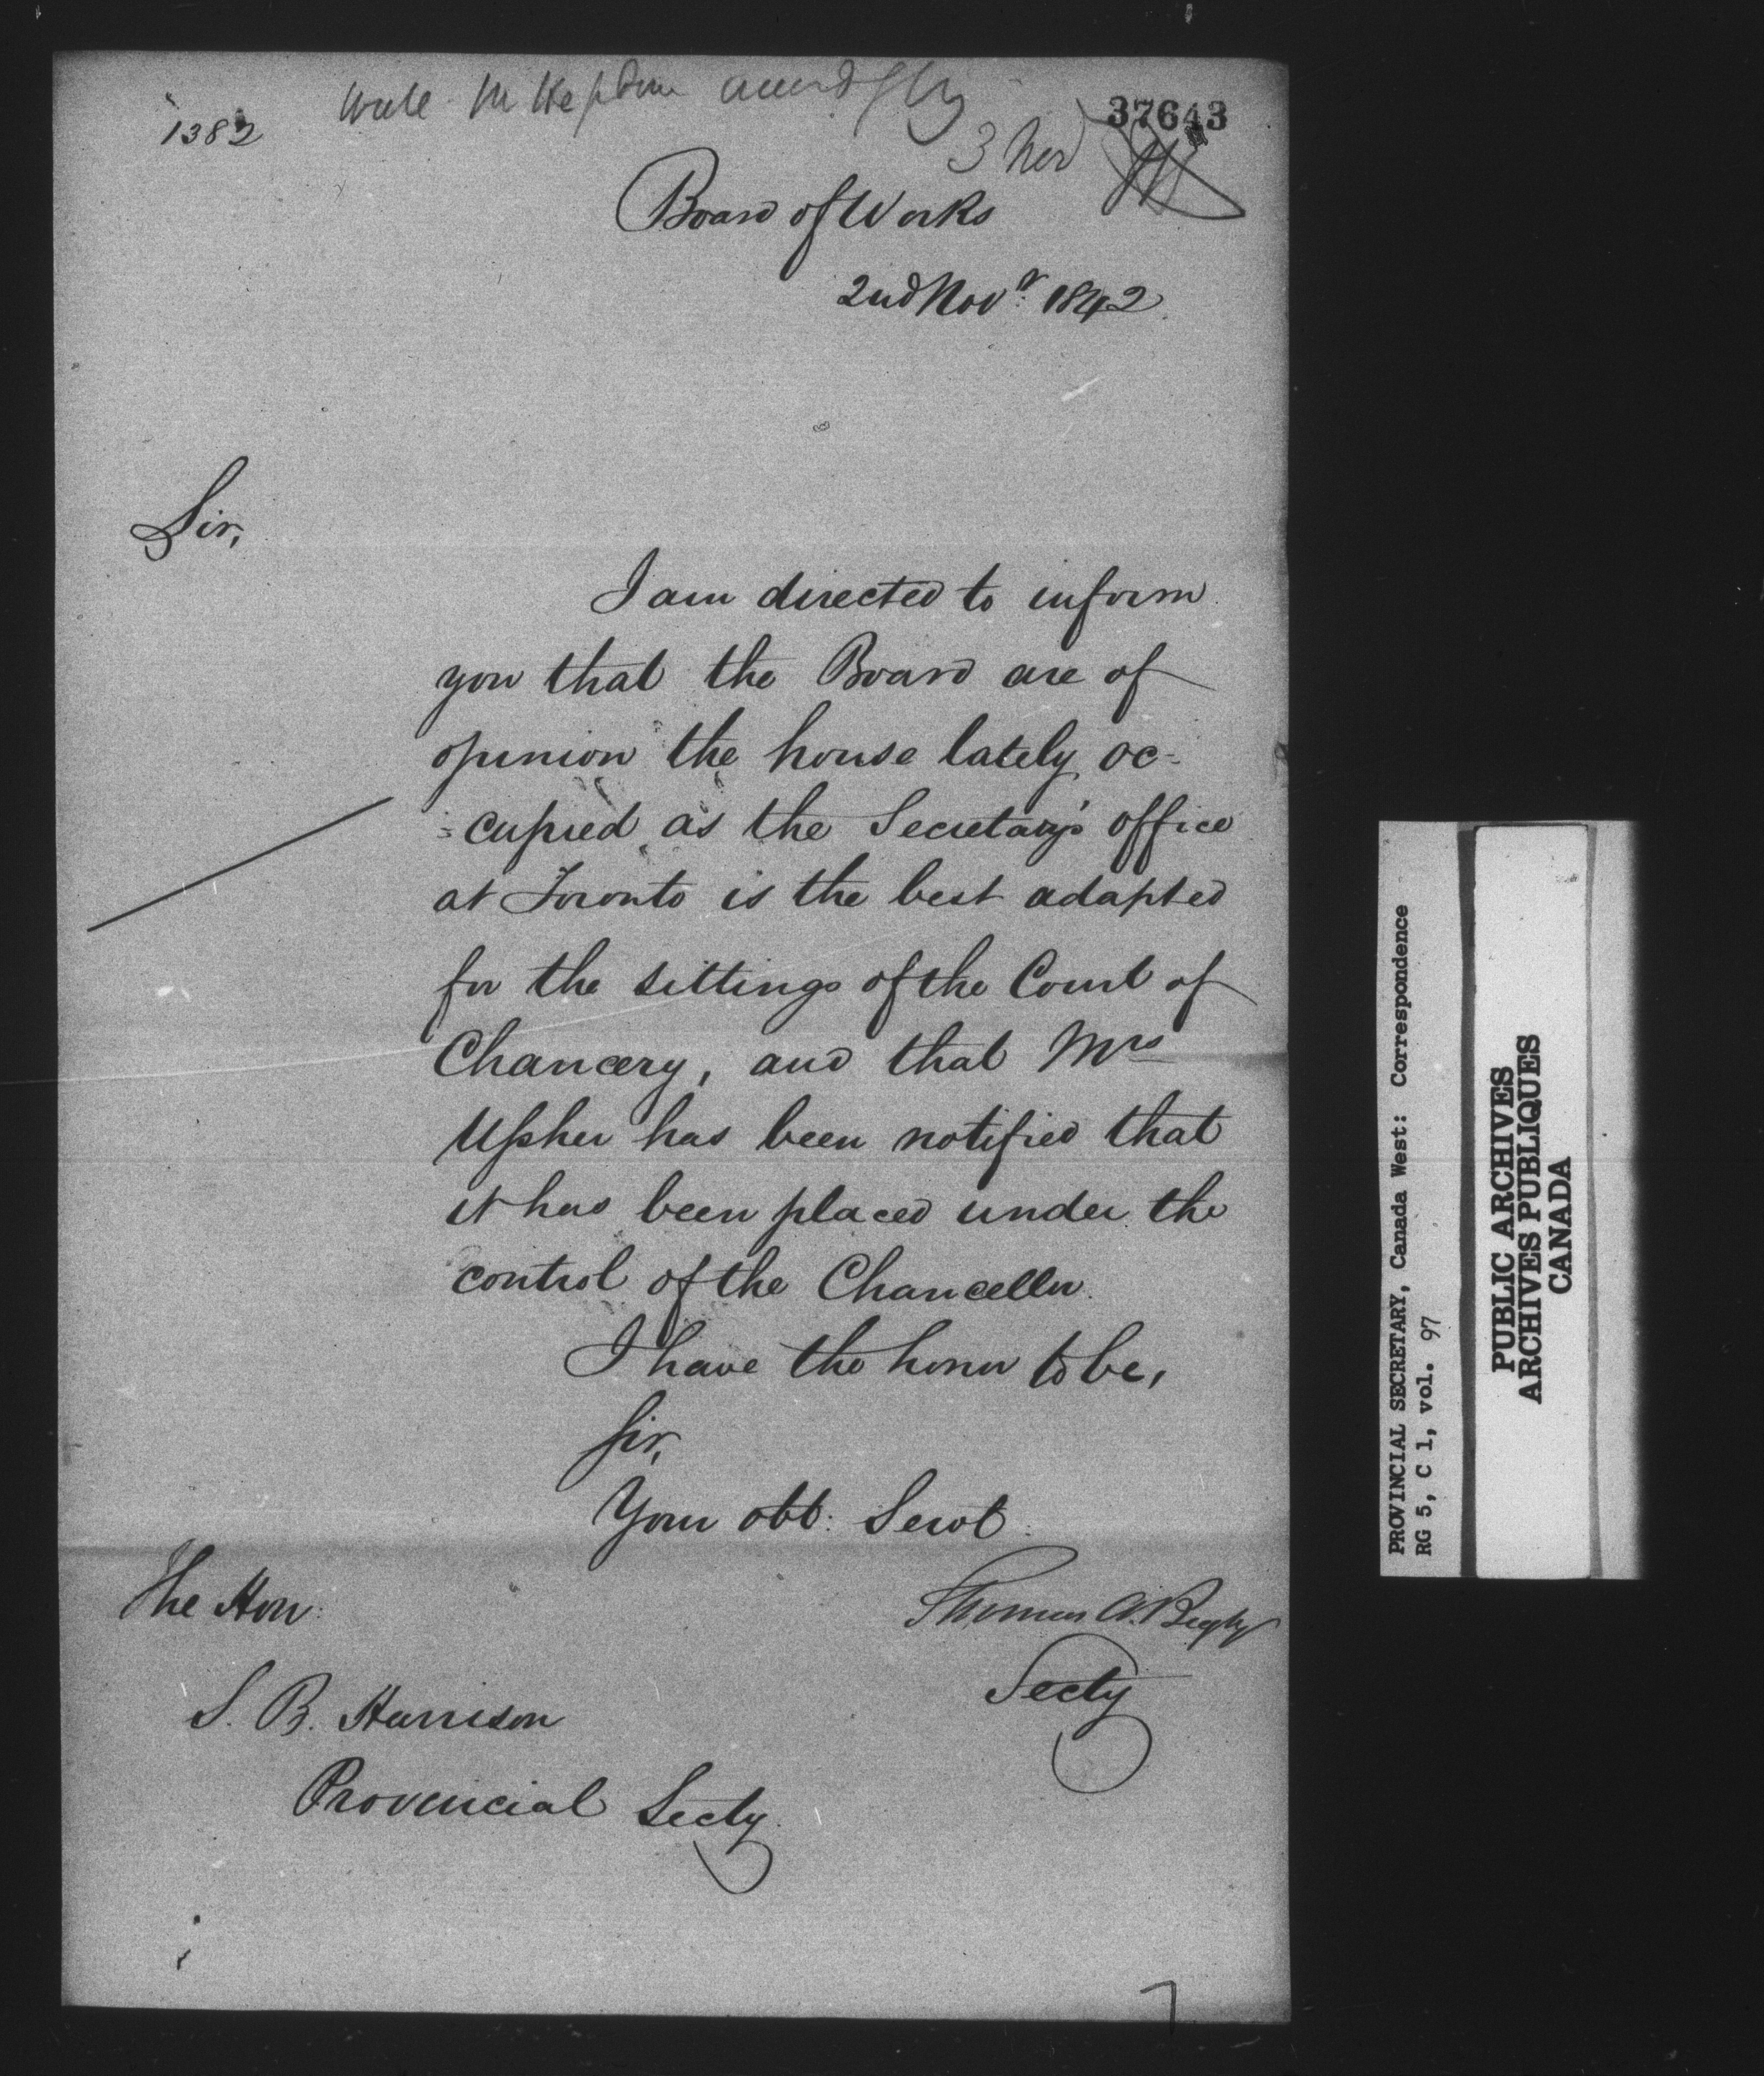 1382
Write Mr Hepburn accordgly
37643
3 Nov
Board of Works
2nd Novr. 1842.
Sir,
I am directed to inform
you that the Board are of
opinion the house lately oc-
=cupied as the Secretary's office
at Toronto is the best adapted
for the sittings of the Court of
Chancery, and that Mrs
Ussher has been notified that
it has been placed under the
control of the Chancellor.
I have the honor to be,
Sir,
Your obt. Servt.
Thomas A. Begly
Secty
The Hon:
S. B. Harrison
Provincial Secty.
PROVINCIAL SECRETARY, Canada West: Correspondence
RG 5, C 1, vol. 97
PUBLIC ARCHIVES
ARCHIVES PUBLIQUES
CANADA